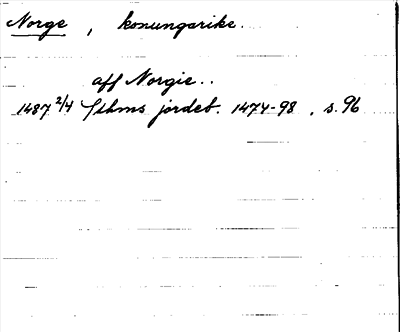 Norge , konungarike.
aff Norgie..
1487 2/4 Sthms jordeb. 1474-98 , s. 96